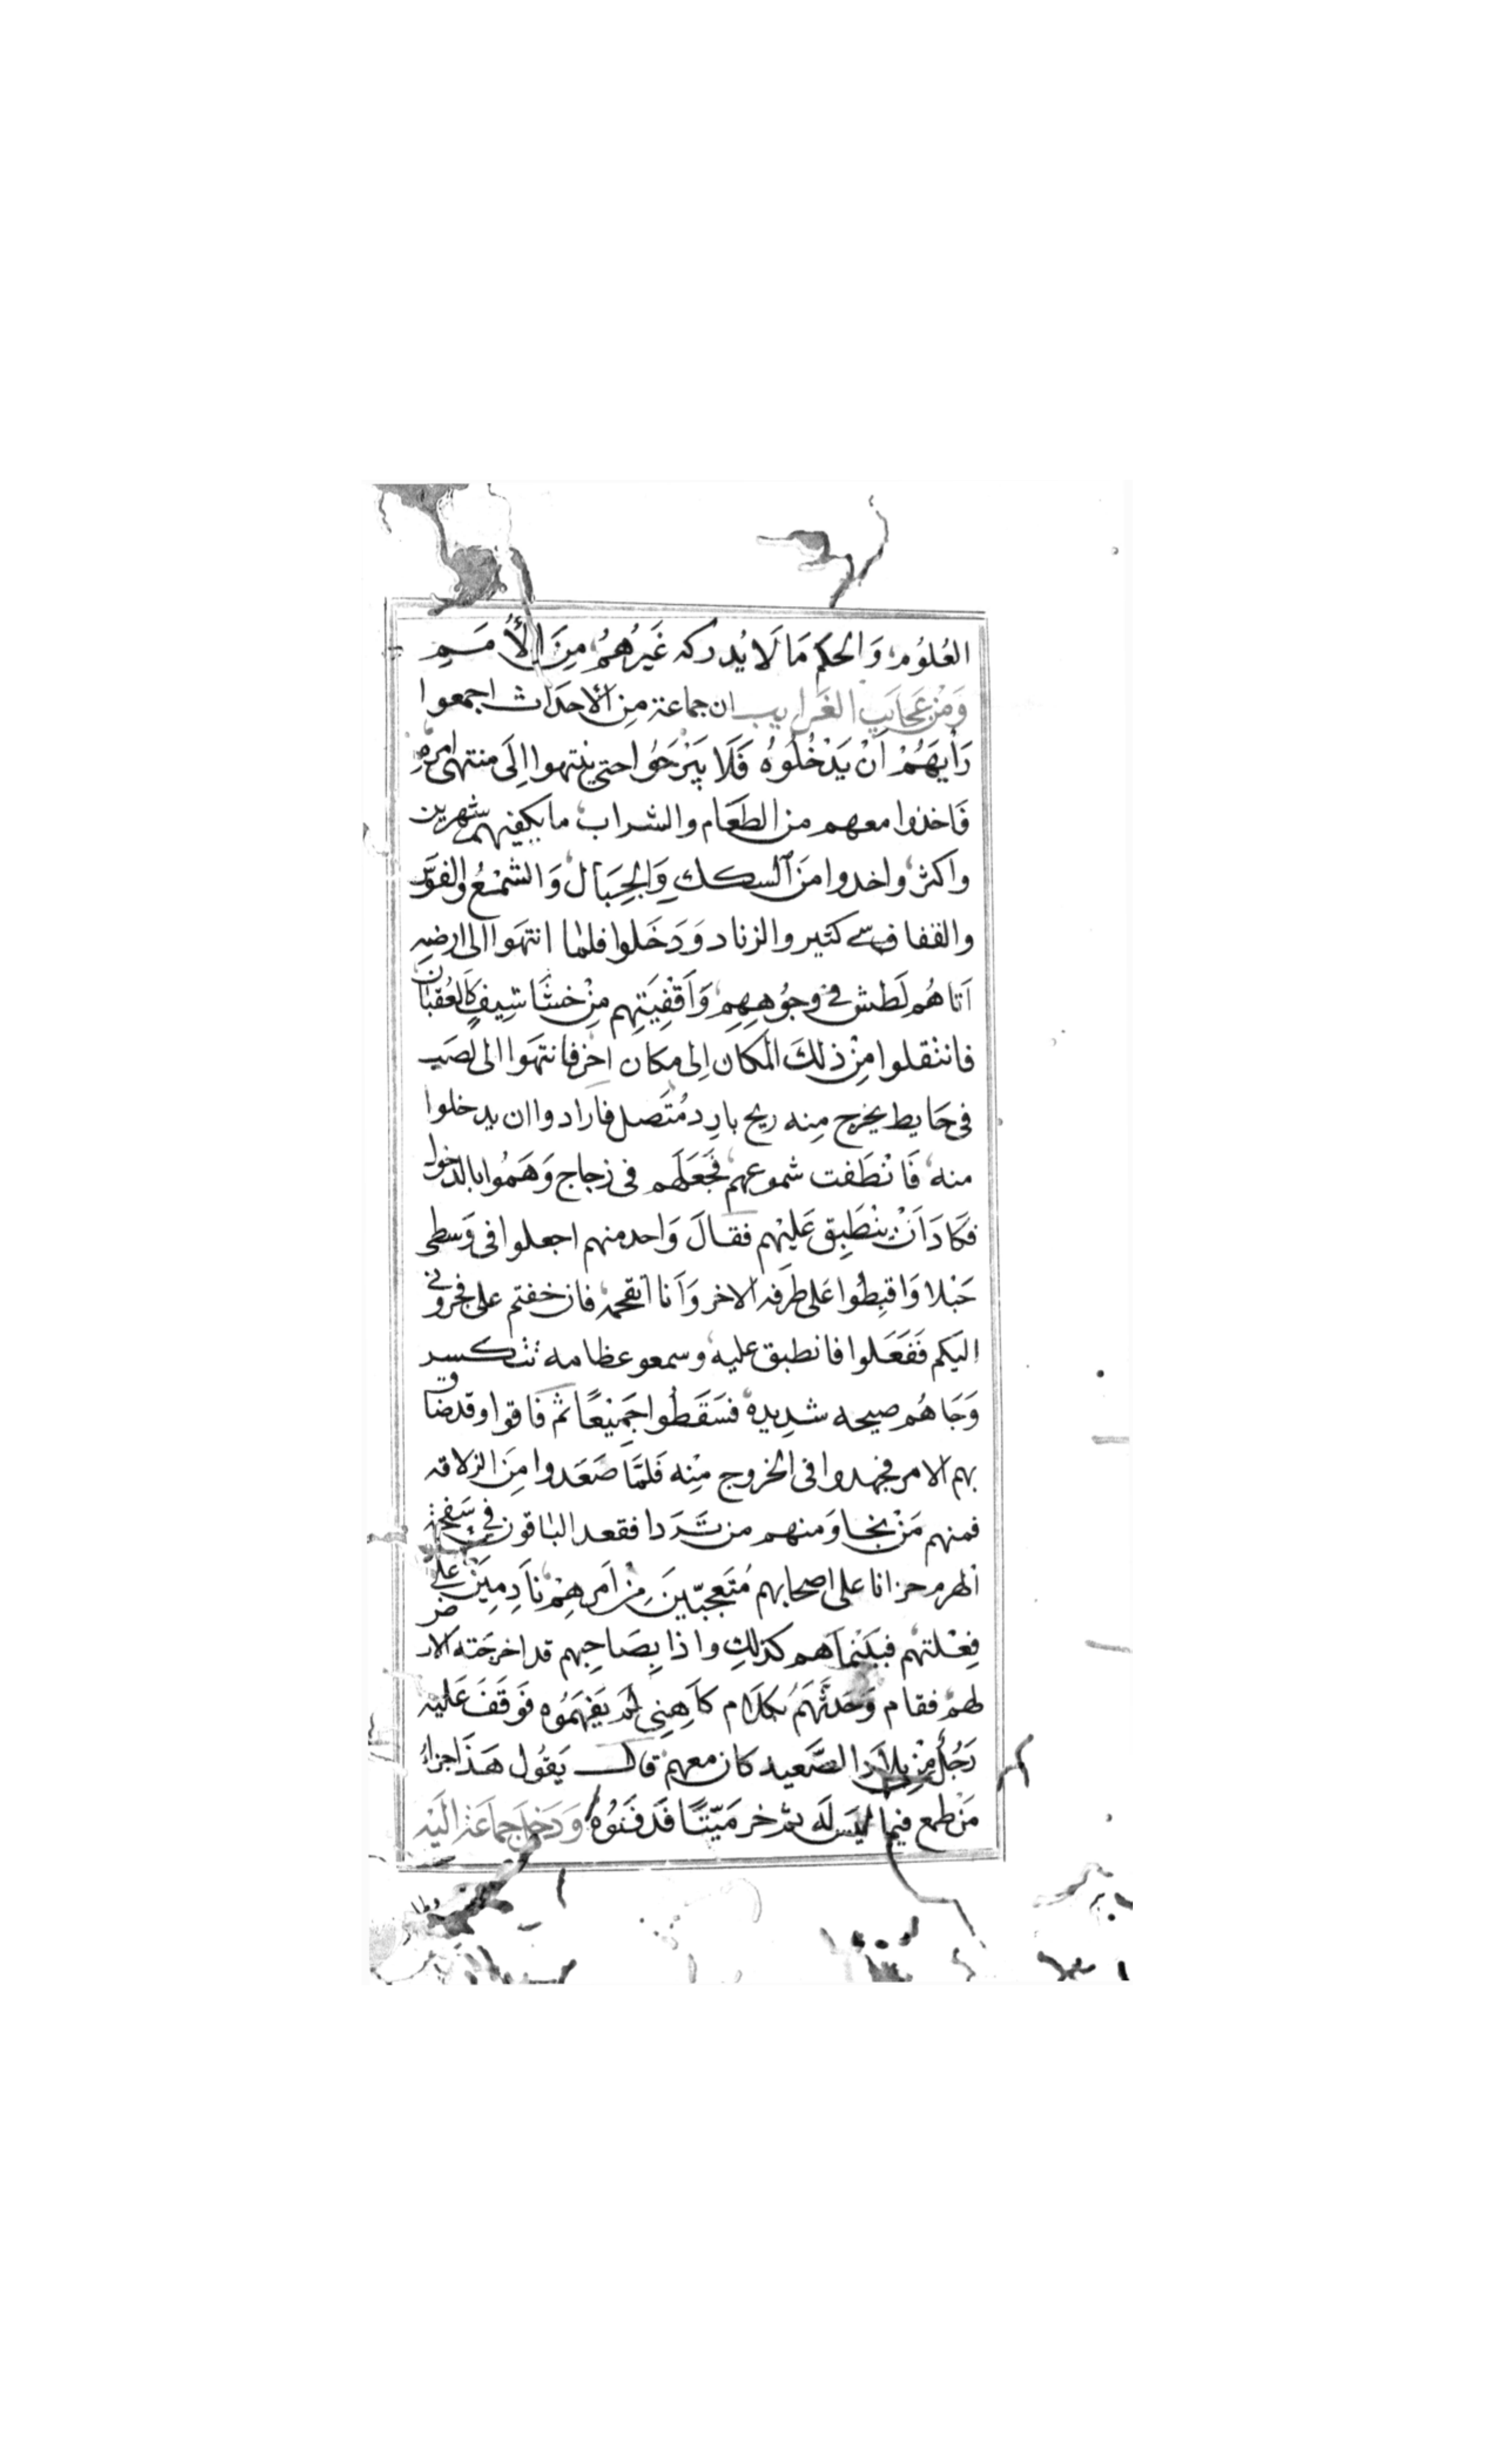 العُلوُم وَالحكم مَا لَا يُدركه غَيرُهُمْ مِنَ الأُمَمِ
وَمِنْ عَجَايَبِ الغَرايب ان جماعة مِن الأحدَاث اجمعوا
رَأيَهُمْ اَنْ يَدْخُلُوهُ فَلَا يَبْرَحُوا حتي ينتهوا اِلَى منتهى امره
فَاخذوا معهم من الطعَام والشراب ما يكفيهم شهرين
واكثر واخدوا مَن السكك وَالحِبَال وَالشمْعُ والفوَس
والقفاف شي كثير والزناد وَدَخَلوا فلما انتهَوا الى ارضه
اَتاهُم لَطش في وجُوهِهِم وَاَقْفِيَتِهِم مِنْ خَشَاشِيفٍ كَالعُقبَان
فانتْقلوا مِنْ ذلكَ المكَان اِلى مكان اخر فانتهَوا الى نصَب
فى حَايط يخرج مِنه ريح بارِد مُتَصل فارَادوا ان يدخلوا
منه فَانْطَفت شموعهم فجَعَلَهم فى زجاج وَهَمُوا بالدخول
فكَادَ اَنْ يَنْطَبِق عَليْهم فقالَ وَاحد منهم اجعلوا فى وَسطى
حَبْلا وَاقبِطُوا عَلى طرَفه الاخر وَأنا اتقحمه فان خفتم على فجروني
اليَكم فَفَعَلوا فانطبق عليه وسمعو عظامه تتكسر
وَجَاهُم صيحه شدِيده فسَقَطُوا جَمِيْعًا ثم فَاقوا وقد ضاق
بهم الامر فجهدوا فى الخروج مِنْه فَلمَّا صَعَدوا مِنَ الزلاقه
فمنهم مَنْ نجا وَمنهم من تَرَدا فقعد البَاقون في سَفحَة
الهرم حزانا على اصحابهم مُتَعَجبّينَ مِنْ اَمرِهِمْ نَادِمِينَ علَى
فِعْلتهم فبَيْنَماَ هم كذلِك واذا بِصَاحِبهم قد اخرجَته الارض
لهم فقام وَحَدثَّهَمُ بكلَام كاَهِنِى لمَ يَفهَمُوه فوَقَفَ عَليْه
رَجُل مِنْ بِلَاد الصَّعيد كان معهم قال يَقُول هَذَا جزاءُ
مَنْ طمع فيما ليَسَ لَه ثم خر مَيّتًا فَدَفَنوُهُ وَدَخلَ جمَاعَة اليَه